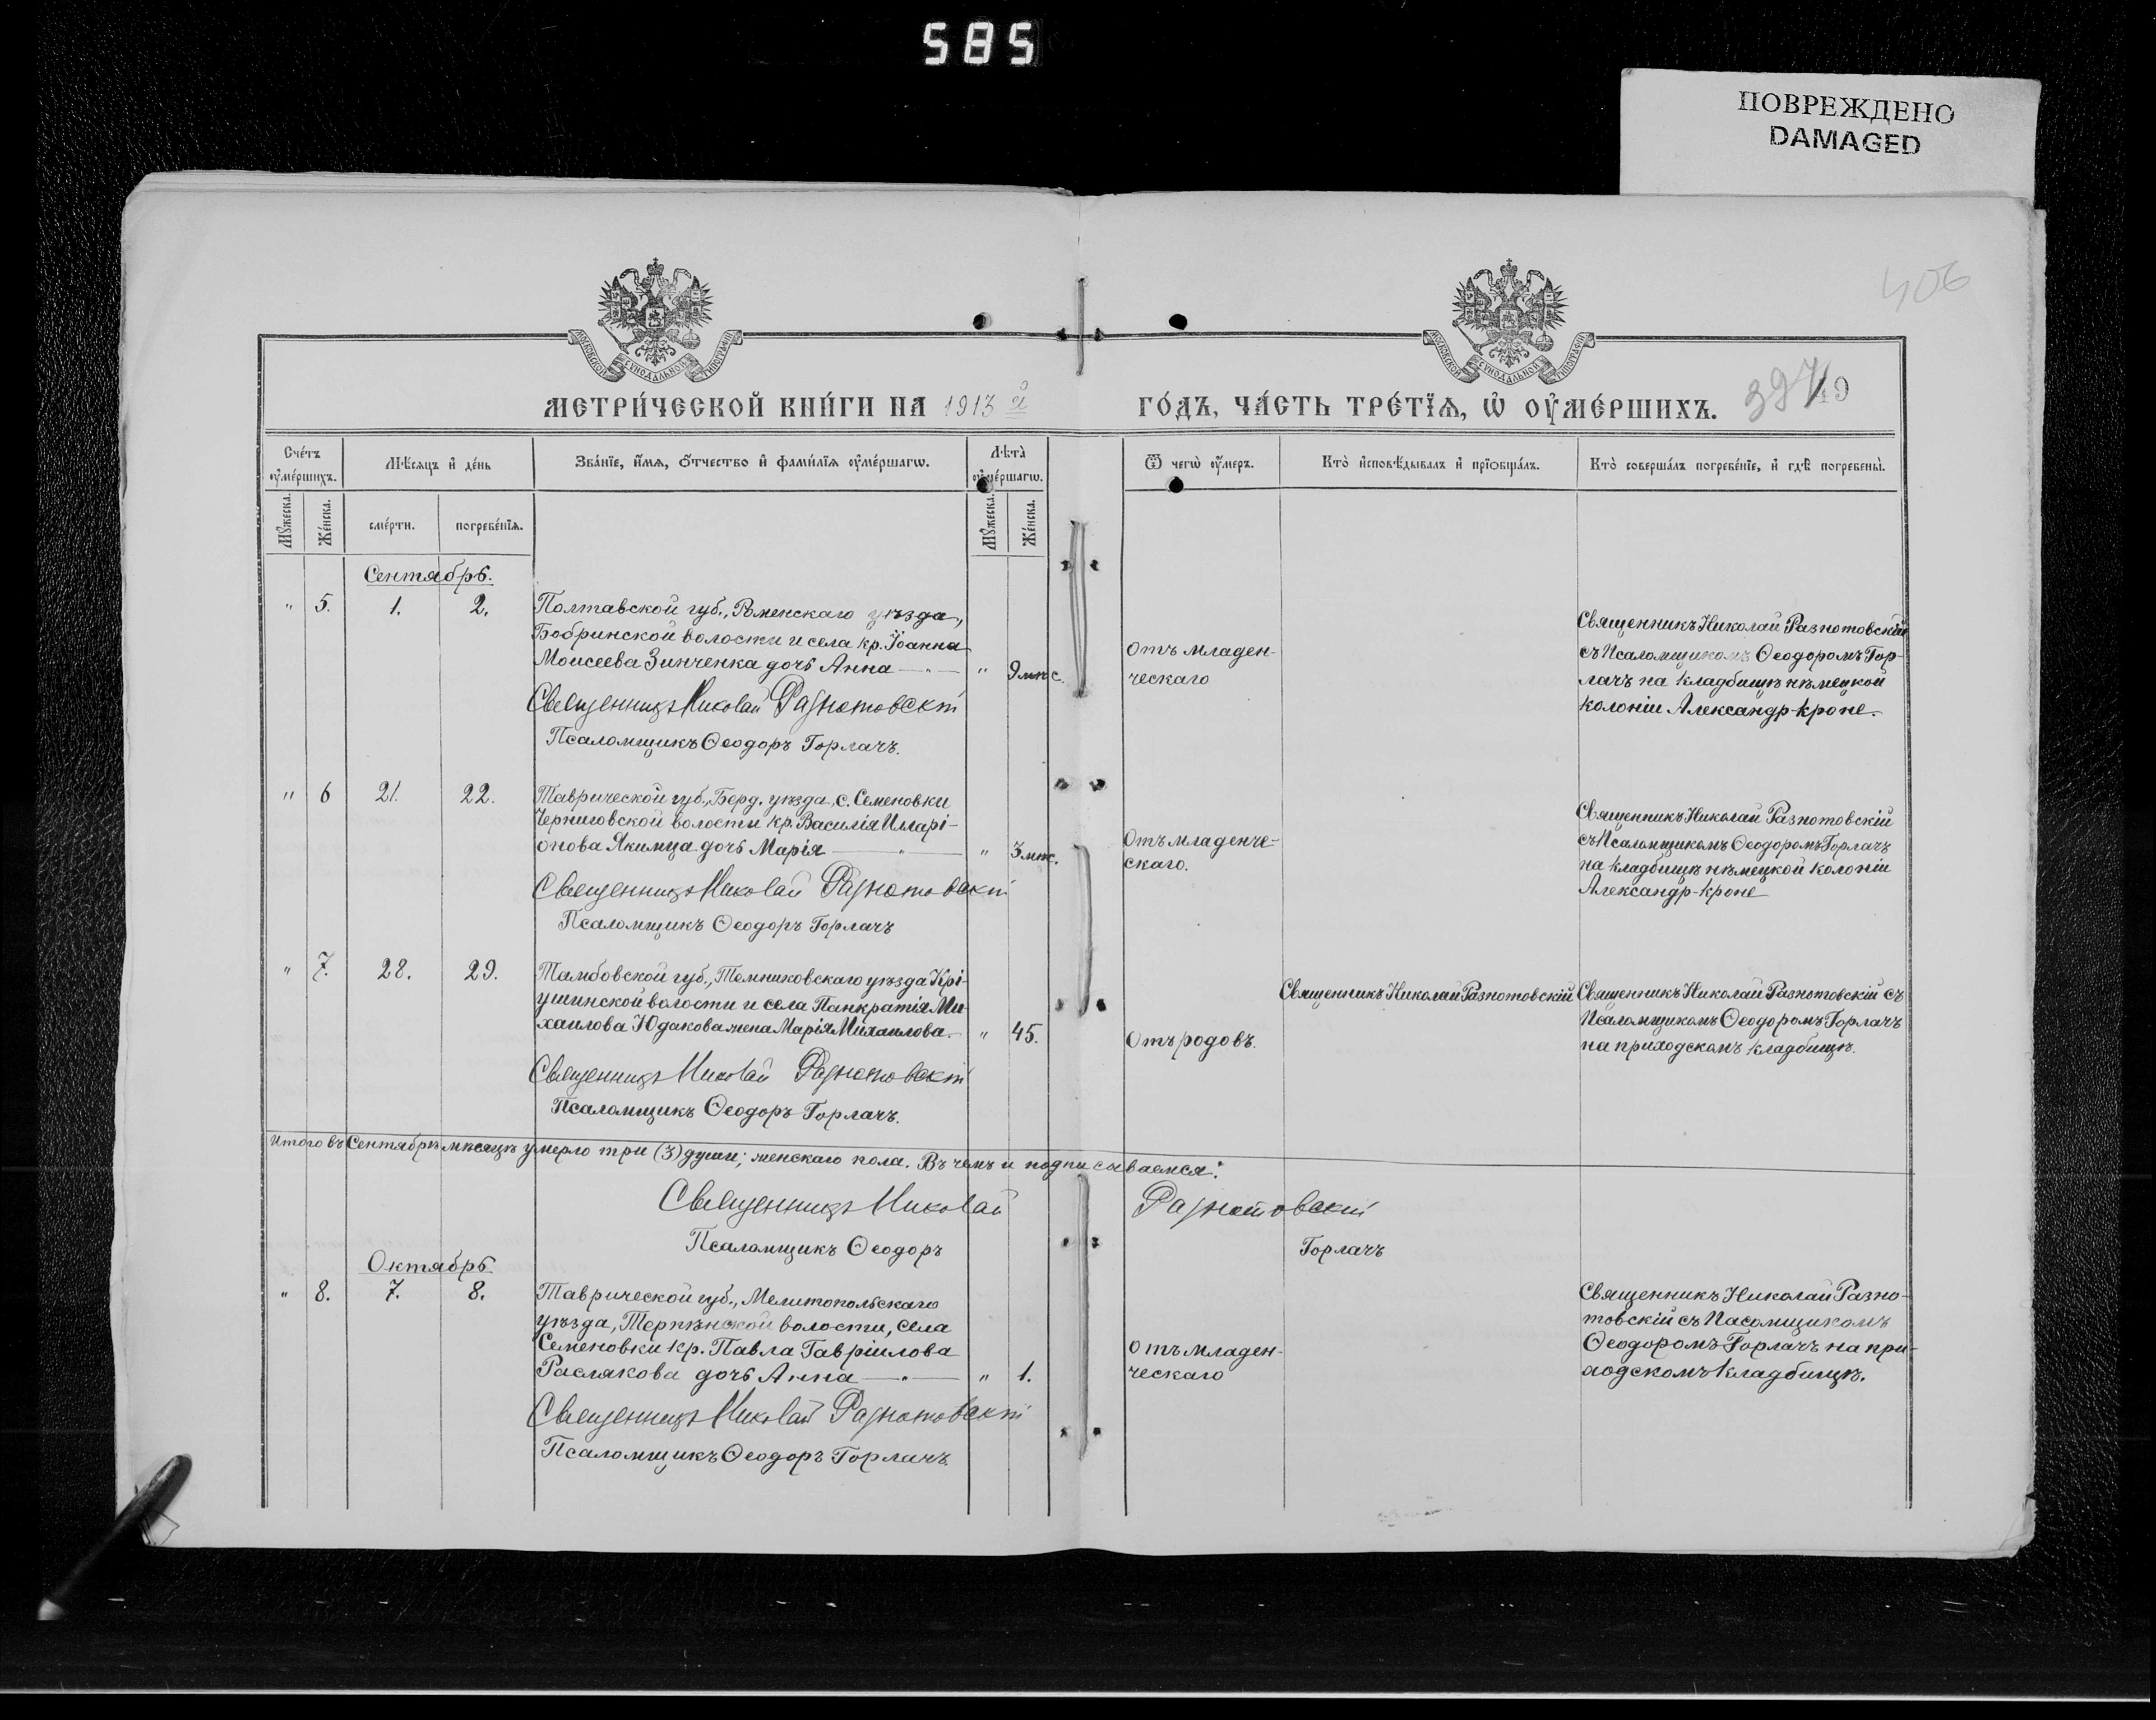 585
ПОВРЕЖДЕНО
DAMAGED
406
МОСКОВСКОЙ СѴНОДАЛЬНОЙ ТИПОГРАФІИ
МОСКОВСКОЙ СѴНОДАЛЬНОЙ ТИПОГРАФІИ
МЕТРИ́ЧЕСКОЙ КНИ́ГИ НА 1913 й
ГО́ДЪ, ЧА́СТЬ ТРЕ́ТЇѦ, Ѡ҆ ОУ҆МЕ́РШИХЪ.
Сче́тъ оу҆ме́ршихъ.
Мѣ́сяцъ и҆ де́нь
Зва́нїе, и҆́мѧ, ѻ҆́тчество и҆ фами́лїѧ оу҆ме́ршагѡ.
Лѣ́та̀ оу҆ме́ршагѡ.
Ѿ чегѡ̀ оу҆́меръ.
Кто̀ и҆сповѣ́дывалъ и҆ прїѡбща́лъ.
Кто̀ соверша́лъ погребе́нїе, и҆ гдѣ̀ погребены̀.
Мꙋ́жеска.
Же́нска.
сме́рти.
погребе́нїѧ.
Мꙋ́жеска.
Же́нска.
Сентябрь.
" 5. 1. 2. Полтавской губ., Роменскаго уѣзда,
Бобринской волости и села кр. Іоанна
Моисеева Зинченка дочь Анна — " — " 9 мѣс.
Священникъ Николай Разнотовскій
Псаломщикъ Ѳеодоръ Горлачъ.
Отъ младен-
ческаго
Священникъ Николай Разнотовскій
съ Псаломщикомъ Ѳеодоромъ Гор-
лачъ на кладбищѣ нѣмецкой
колоніи Александр-кроне.
" 6 21. 22. Таврической губ., Берд. уѣзда, с. Семеновки
Черниговской волости кр. Василія Иларі-
онова Якимца дочь Марія — " — " 3 мѣс.
Священникъ Николай Разнотовскій
Псаломщикъ Ѳеодоръ Горлачъ
Отъ младенче-
скаго.
Священникъ Николай Разнотовскій
съ Псаломщикомъ Ѳеодоромъ Горлачъ
на кладбищѣ нѣмецкой колоніи
Александр-кроне
" 7. 28. 29. Тамбовской губ., Темниковскаго уѣзда Крі-
ушинской волости и села Панкратія Ми-
хаилова Юдакова жена Марія Михаилова. " 45.
Священникъ Николай Разнотовскій
Псаломщикъ Ѳеодоръ Горлачъ.
Отъ родовъ.
Священникъ Николай Разнотовскій
Священникъ Николай Разнотовскій съ
Псаломщикомъ Ѳеодоромъ Горлачъ
на приходскомъ кладбищѣ.
Итого въ Сентябрѣ мѣсяцѣ умерло три (3) души; женскаго пола. Въ чемъ и подписываемся:
Священникъ Николай Разнотовскій
Псаломщикъ Ѳеодоръ Горлачъ
Октябрь
" 8. 7. 8. Таврической губ., Мелитопольскаго
уѣзда, Терпѣнской волости, села
Семеновки кр. Павла Гавріилова
Раслякова дочь Анна — " — " 1.
Священникъ Николай Разнотовскій
Псаломщикъ Ѳеодоръ Горлачъ.
Отъ младен-
ческаго
Священникъ Николай Разно-
товскій съ Пасомщикомъ
Ѳеодоромъ Горлачъ на при-
ходскомъ кладбищѣ.